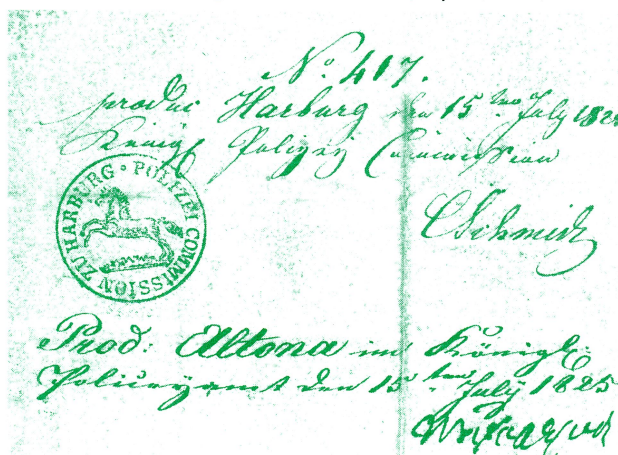 No. 417.
produc Harburg den 15ten July 182
Königl Polizey Commission
POLIZEI COMMISSION ZU HARBURG
CSchmidt
Prod: Altona im Königl:
Policeyamt den 15ten July 1825